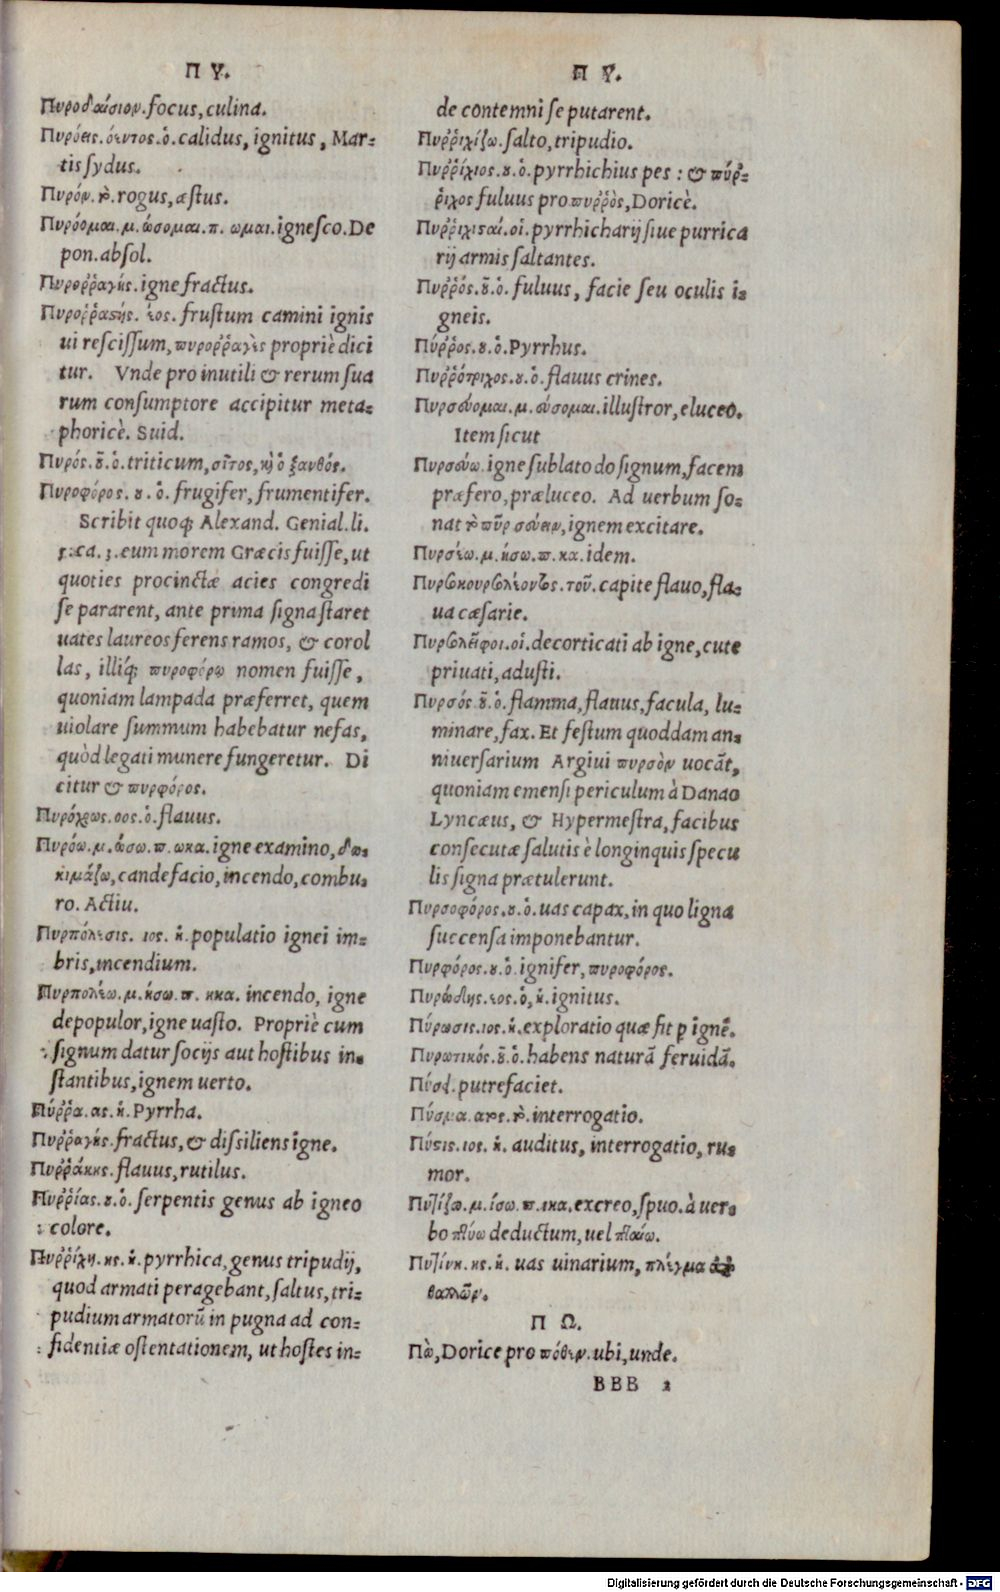 Π Υ.
Πυροδαίσιον. focus, culina.
Πυρόεις. όεντος. ὁ. calidus, ignitus, Mar-
tis sydus.
Πυρόν. τὸ. rogus, æstus.
Πυρόομαι. μ. ώσομαι. π. ωμαι. ignesco. De
pon. absol.
Πυροῤῥαγής. igne fractus.
ος. frustum camini ignis
ui rescissum, πυροῤῥαγὲς propriè dici
tur. Vnde pro inutili & rerum sua
rum consumptore accipitur meta-
phoricè. Suid.
Πυρός. οῦ. ὁ. triticum, σῖτος, καὶ ὁ ξανθός.
Πυροφόρος. ου. ὁ. frugifer, frumentifer.
Scribit quoq; Alexand. Genial. li.
ca. 3. eum morem Græcis fuisse, ut
quoties procinctæ acies congredi
se pararent, ante prima signa staret
uates laureos ferens ramos, & corol
las, illiq́; πυροφόρῳ nomen fuisse,
quoniam lampada præferret, quem
uiolare summum habebatur nefas,
quòd legati munere fungeretur. Di
citur & πυρφόρος.
Πυρόχρως. οος. ὁ. flauus.
Πυρόω. μ. ώσω. π. ωκα. igne examino, δο-
κιμάζω, candefacio, incendo, combu-
ro. Actiu.
Πυρπόλεσις. ιος. ἡ. populatio ignei im-
bris, incendium.
Πυρπολέω. μ. ήσω. π. ηκα. incendo, igne
depopulor, igne uasto. Propriè cum
signum datur socijs aut hostibus in-
stantibus, ignem uerto.
Πύῤῥα. ας. ἡ. Pyrrha.
Πυῤῥαγής. fractus, & dissiliens igne.
Πυῤῥάκης. flauus, rutilus.
Πυῤῥίας. ου. ὁ. serpentis genus ab igneo
colore.
Πυῤῥίχη. ης. ἡ. pyrrhica, genus tripudij,
quod armati peragebant, saltus, tri-
pudium armatorū in pugna ad con-
fidentiæ ostentationem, ut hostes in-
Π Υ.
de contemni se putarent.
Πυῤῥιχίζω. salto, tripudio.
Πυῤῥίχιος. ου. ὁ. pyrrhichius pes: & πύῤ-
ῥιχος fuluus pro πυῤῥὸς, Doricè.
Πυῤῥιχισταί. οἱ. pyrrhicharij siue purrica
rij armis saltantes.
Πυῤῥός. οῦ. ὁ. fuluus, facie seu oculis i-
gneis.
Πύῤῥος. ου. ὁ. Pyrrhus.
Πυῤῥότριχος. ου. ὁ. flauus crines.
Πυρσεύομαι. μ. εύσομαι. illustror, eluceo.
Item sicut
Πυρσεύω. igne sublato do signum, facem
præfero, præluceo. Ad uerbum so-
nat τὸ πῦρ σεύειν, ignem excitare.
Πυρσέω. μ. ήσω. π. κα. idem.
τοῦ. capite flauo, fla-
ua cæsarie.
οἱ. decorticati ab igne, cute
priuati, adusti.
Πυρσός. οῦ. ὁ. flamma, flauus, facula, lu-
minare, fax. Et festum quoddam an-
niuersarium Argiui πυρσὸν uocāt,
quoniam emensi periculum à Danao
Lyncæus, & Hypermestra, facibus
consecutæ salutis è longinquis specu
lis signa prætulerunt.
Πυρσοφόρος. ου. ὁ. uas capax, in quo ligna
succensa imponebantur.
Πυρφόρος. ου. ὁ. ignifer, πυροφόρος.
Πυρώδης. εος. ὁ, ἡ. ignitus.
Πύρωσις. ιος. ἡ. exploratio quæ fit p ignē.
Πυρωτικός. οῦ. ὁ. habens naturā feruidā.
Πύσει. putrefaciet.
Πύσμα. ατος. τὸ. interrogatio.
Πύστις. ιος. ἡ. auditus, interrogatio, ru-
mor.
Πυτίζω. μ. ίσω. π. ικα. excreo, spuo. à uer-
bo πτύω deductum, uel πταίω.
Πυτίνη. ης. ἡ. uas uinarium, πλέγμα
Π Ω.
Πῶ, Dorice pro πόθεν. ubi, unde.
BBB 2
Digitalisierung gefördert durch die Deutsche Forschungsgemeinschaft - DFG